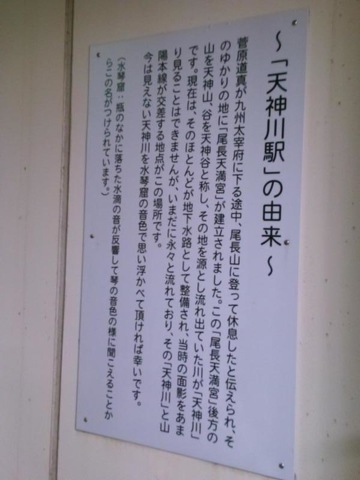 ～「天神川駅」の由来～
菅原道真が九州太宰府に下る途中、尾長山に登って休息したと伝えられ、そ
のゆかりの地に「尾長天満宮」が建立されました。この「尾長天満宮」後方の
山を天神山、谷を天神谷と称し、その地を源とし流れ出ていた川が「天神川」
です。現在は、そのほとんどが地下水路として整備され、当時の面影をあま
り見ることはできませんが、いまだに永々と流れており、その「天神川」と山
陽本線が交差する地点がこの場所です。
今は見えない天神川を水琴窟の音色で思い浮かべて頂ければ幸いです。
(水琴窟：瓶のなかに落ちた水滴の音が反響して琴の音色の様に聞こえることか
らこの名がつけられています。)